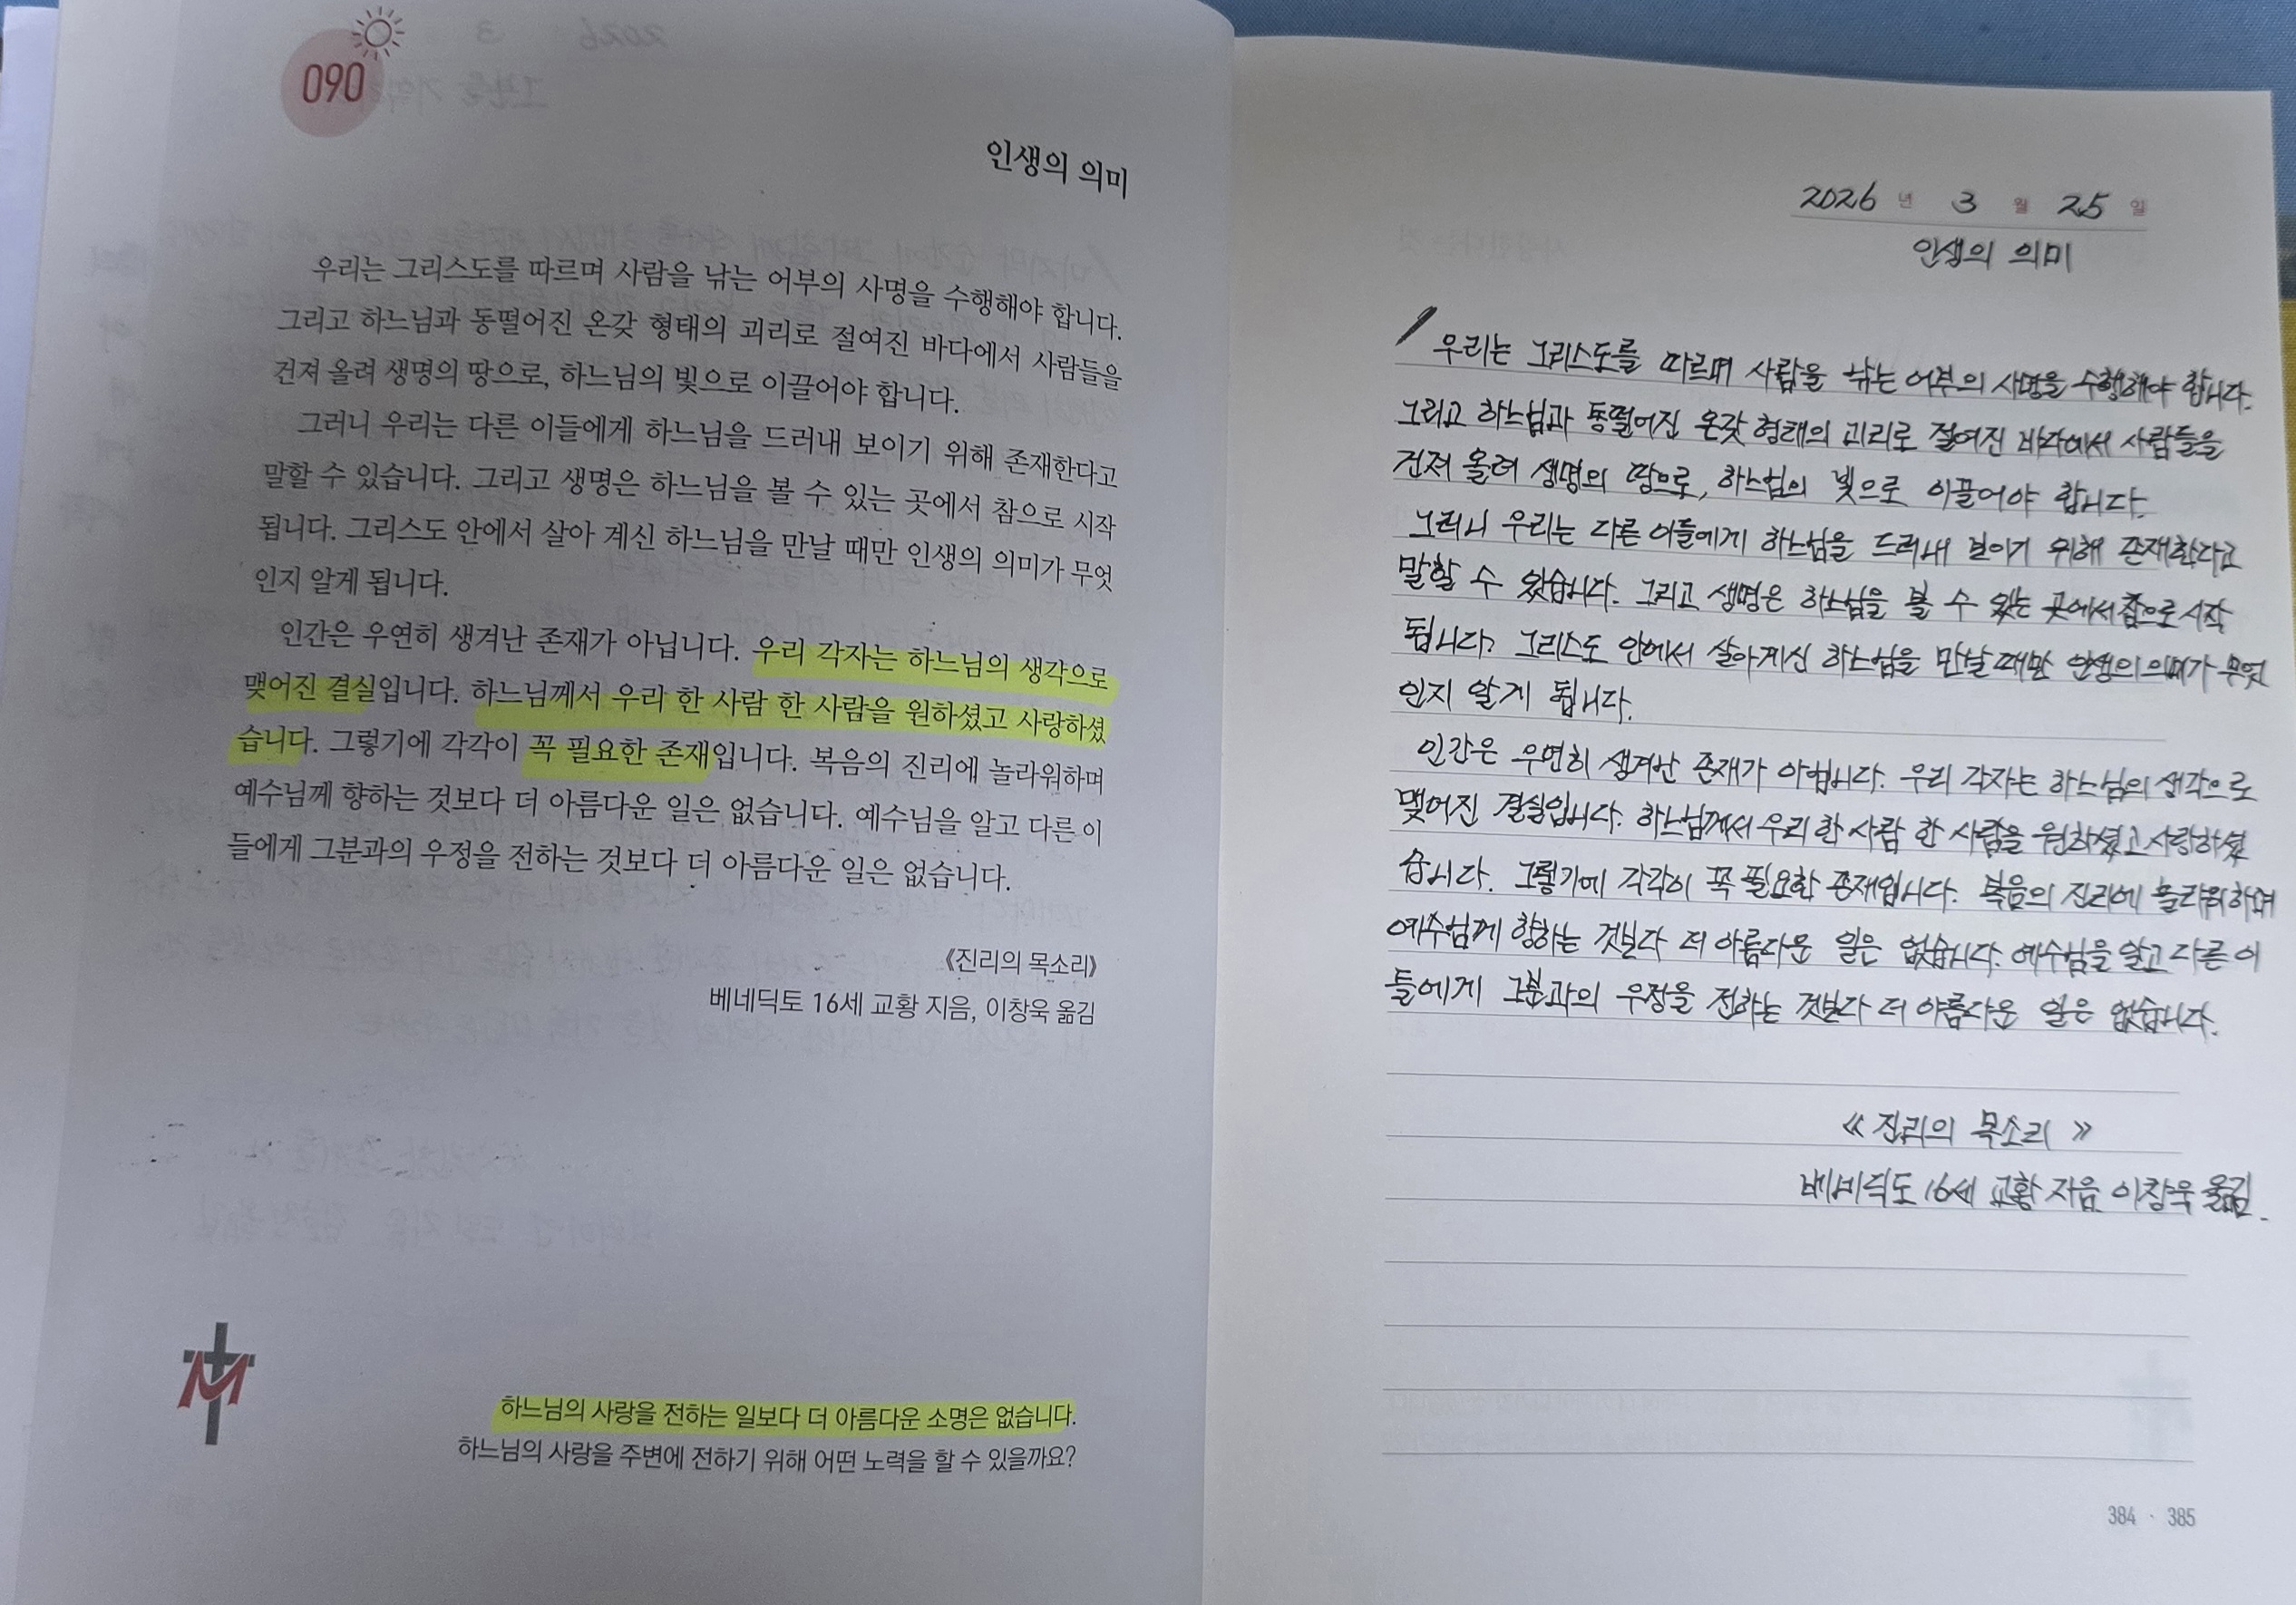 090
인생의 의미
우리는 그리스도를 따르며 사람을 낚는 어부의 사명을 수행해야 합니다.
그리고 하느님과 동떨어진 온갖 형태의 괴리로 절여진 바다에서 사람들을
건져 올려 생명의 땅으로, 하느님의 빛으로 이끌어야 합니다.
그러니 우리는 다른 이들에게 하느님을 드러내 보이기 위해 존재한다고
말할 수 있습니다. 그리고 생명은 하느님을 볼 수 있는 곳에서 참으로 시작
됩니다. 그리스도 안에서 살아 계신 하느님을 만날 때만 인생의 의미가 무엇
인지 알게 됩니다.
인간은 우연히 생겨난 존재가 아닙니다. 우리 각자는 하느님의 생각으로
맺어진 결실입니다. 하느님께서 우리 한 사람 한 사람을 원하셨고 사랑하셨
습니다. 그렇기에 각각이 꼭 필요한 존재입니다. 복음의 진리에 놀라워하며
예수님께 향하는 것보다 더 아름다운 일은 없습니다. 예수님을 알고 다른 이
들에게 그분과의 우정을 전하는 것보다 더 아름다운 일은 없습니다.
《진리의 목소리》
베네딕토 16세 교황 지음, 이창욱 옮김
M
하느님의 사랑을 전하는 일보다 더 아름다운 소명은 없습니다.
하느님의 사랑을 주변에 전하기 위해 어떤 노력을 할 수 있을까요?
2026 년 3 월 25 일
인생의 의미
우리는 그리스도를 따르며 사람을 낚는 어부의 사명을 수행해야 합니다.
그리고 하느님과 동떨어진 온갖 형태의 괴리로 절여진 바다에서 사람들을
건져 올려 생명의 땅으로, 하느님의 빛으로 이끌어야 합니다.
그러니 우리는 다른 이들에게 하느님을 드러내 보이기 위해 존재한다고
말할 수 있습니다. 그리고 생명은 하느님을 볼 수 있는 곳에서 참으로 시작
됩니다. 그리스도 안에서 살아계신 하느님을 만날 때만 인생의 의미가 무엇
인지 알게 됩니다.
인간은 우연히 생겨난 존재가 아닙니다. 우리 각자는 하느님의 생각으로
맺어진 결실입니다. 하느님께서 우리 한 사람 한 사람을 원하셨고 사랑하셨
습니다. 그렇기에 각각이 꼭 필요한 존재입니다. 복음의 진리에 놀라워하며
예수님께 향하는 것보다 더 아름다운 일은 없습니다. 예수님을 알고 다른 이
들에게 그분과의 우정을 전하는 것보다 더 아름다운 일은 없습니다.
《진리의 목소리》
베네딕도 16세 교황 지음 이창욱 옮김.
384 · 385